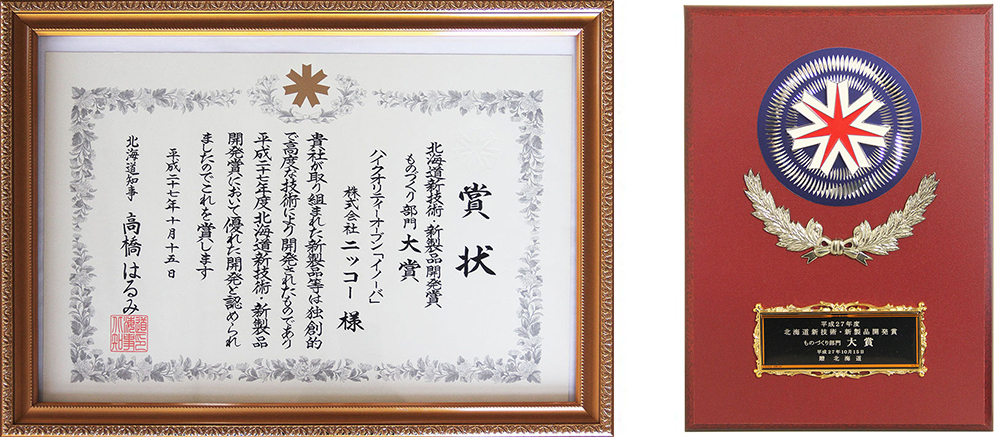 賞状
北海道新技術・新製品開発賞
ものづくり部門 大賞
ハイクオリティーオーブン「イノーバ」
株式会社 ニッコー 様
貴社が取り組まれた新製品等は独創的
で高度な技術により開発されたものであり
平成二十七年度北海道新技術・新製品
開発賞において優れた開発と認められ
ましたのでこれを賞します
平成二十七年十月十五日
北海道知事 高橋はるみ
平成27年度
北海道新技術・新製品開発賞
ものづくり部門 大賞
平成27年10月15日
贈 北海道